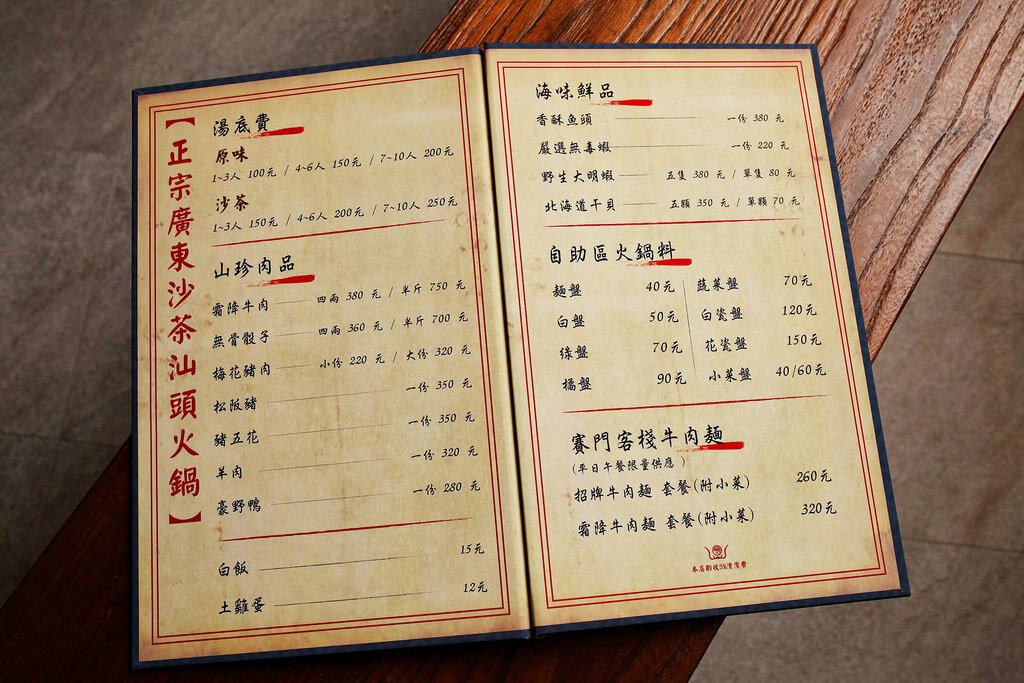 【正宗廣東沙茶汕頭火鍋】
湯底費
原味
1~3人 100元 / 4~6人 150元 / 7~10人 200元
沙茶
1~3人 150元 / 4~6人 200元 / 7~10人 250元
山珍肉品
霜降牛肉 四兩 380 元 / 半斤 750 元
無骨骰子 四兩 360 元 / 半斤 700 元
梅花豬肉 小份 220 元 / 大份 320 元
松阪豬 一份 350 元
豬五花 一份 350 元
羊肉 一份 320 元
豪野鴨 一份 280 元
白飯 15元
土雞蛋 12元
海味鮮品
香酥魚頭 一份 380 元
嚴選無毒蝦 一份 220 元
野生大明蝦 五隻 380 元 / 單隻 80 元
北海道干貝 五顆 350 元 / 單顆 70 元
自助區火鍋料
麵盤 40元 蔬菜盤 70元
白盤 50元 白瓷盤 120元
綠盤 70元 花瓷盤 150元
橘盤 90元 小菜盤 40/60元
賽門客棧牛肉麵
(平日午餐限量供應)
招牌牛肉麵 套餐(附小菜) 260元
霜降牛肉麵 套餐(附小菜) 320元
本店酌收5%清潔費